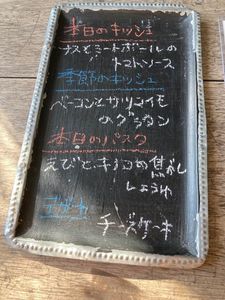 本日のキッシュ
ナスとミートボールの
トマトソース
季節のキッシュ
ベーコンとサツマイモ
のグラタン
本日のパスタ
えびと、キノコの焦がし
しょうゆ
チーズケーキ